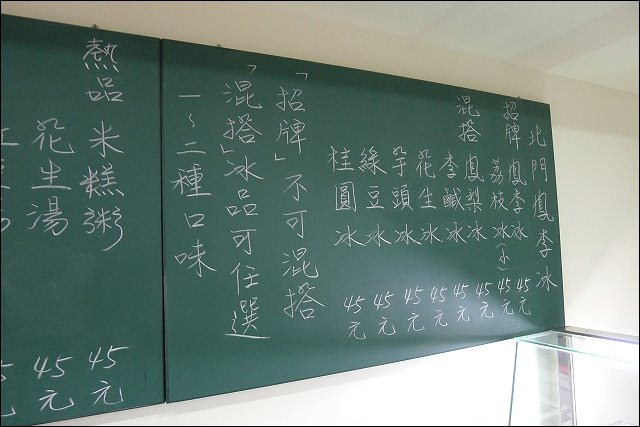 北門鳳李冰
招牌 鳳李冰 45元
荔枝冰(下) 45元
混搭 鳳梨冰 45元
李鹹冰 45元
花生冰 45元
芋頭冰 45元
綠豆冰 45元
桂圓冰 45元
「招牌」不可混搭
「混搭」冰品可任選
一～二種口味
熱品 米糕粥 45元
花生湯 45元